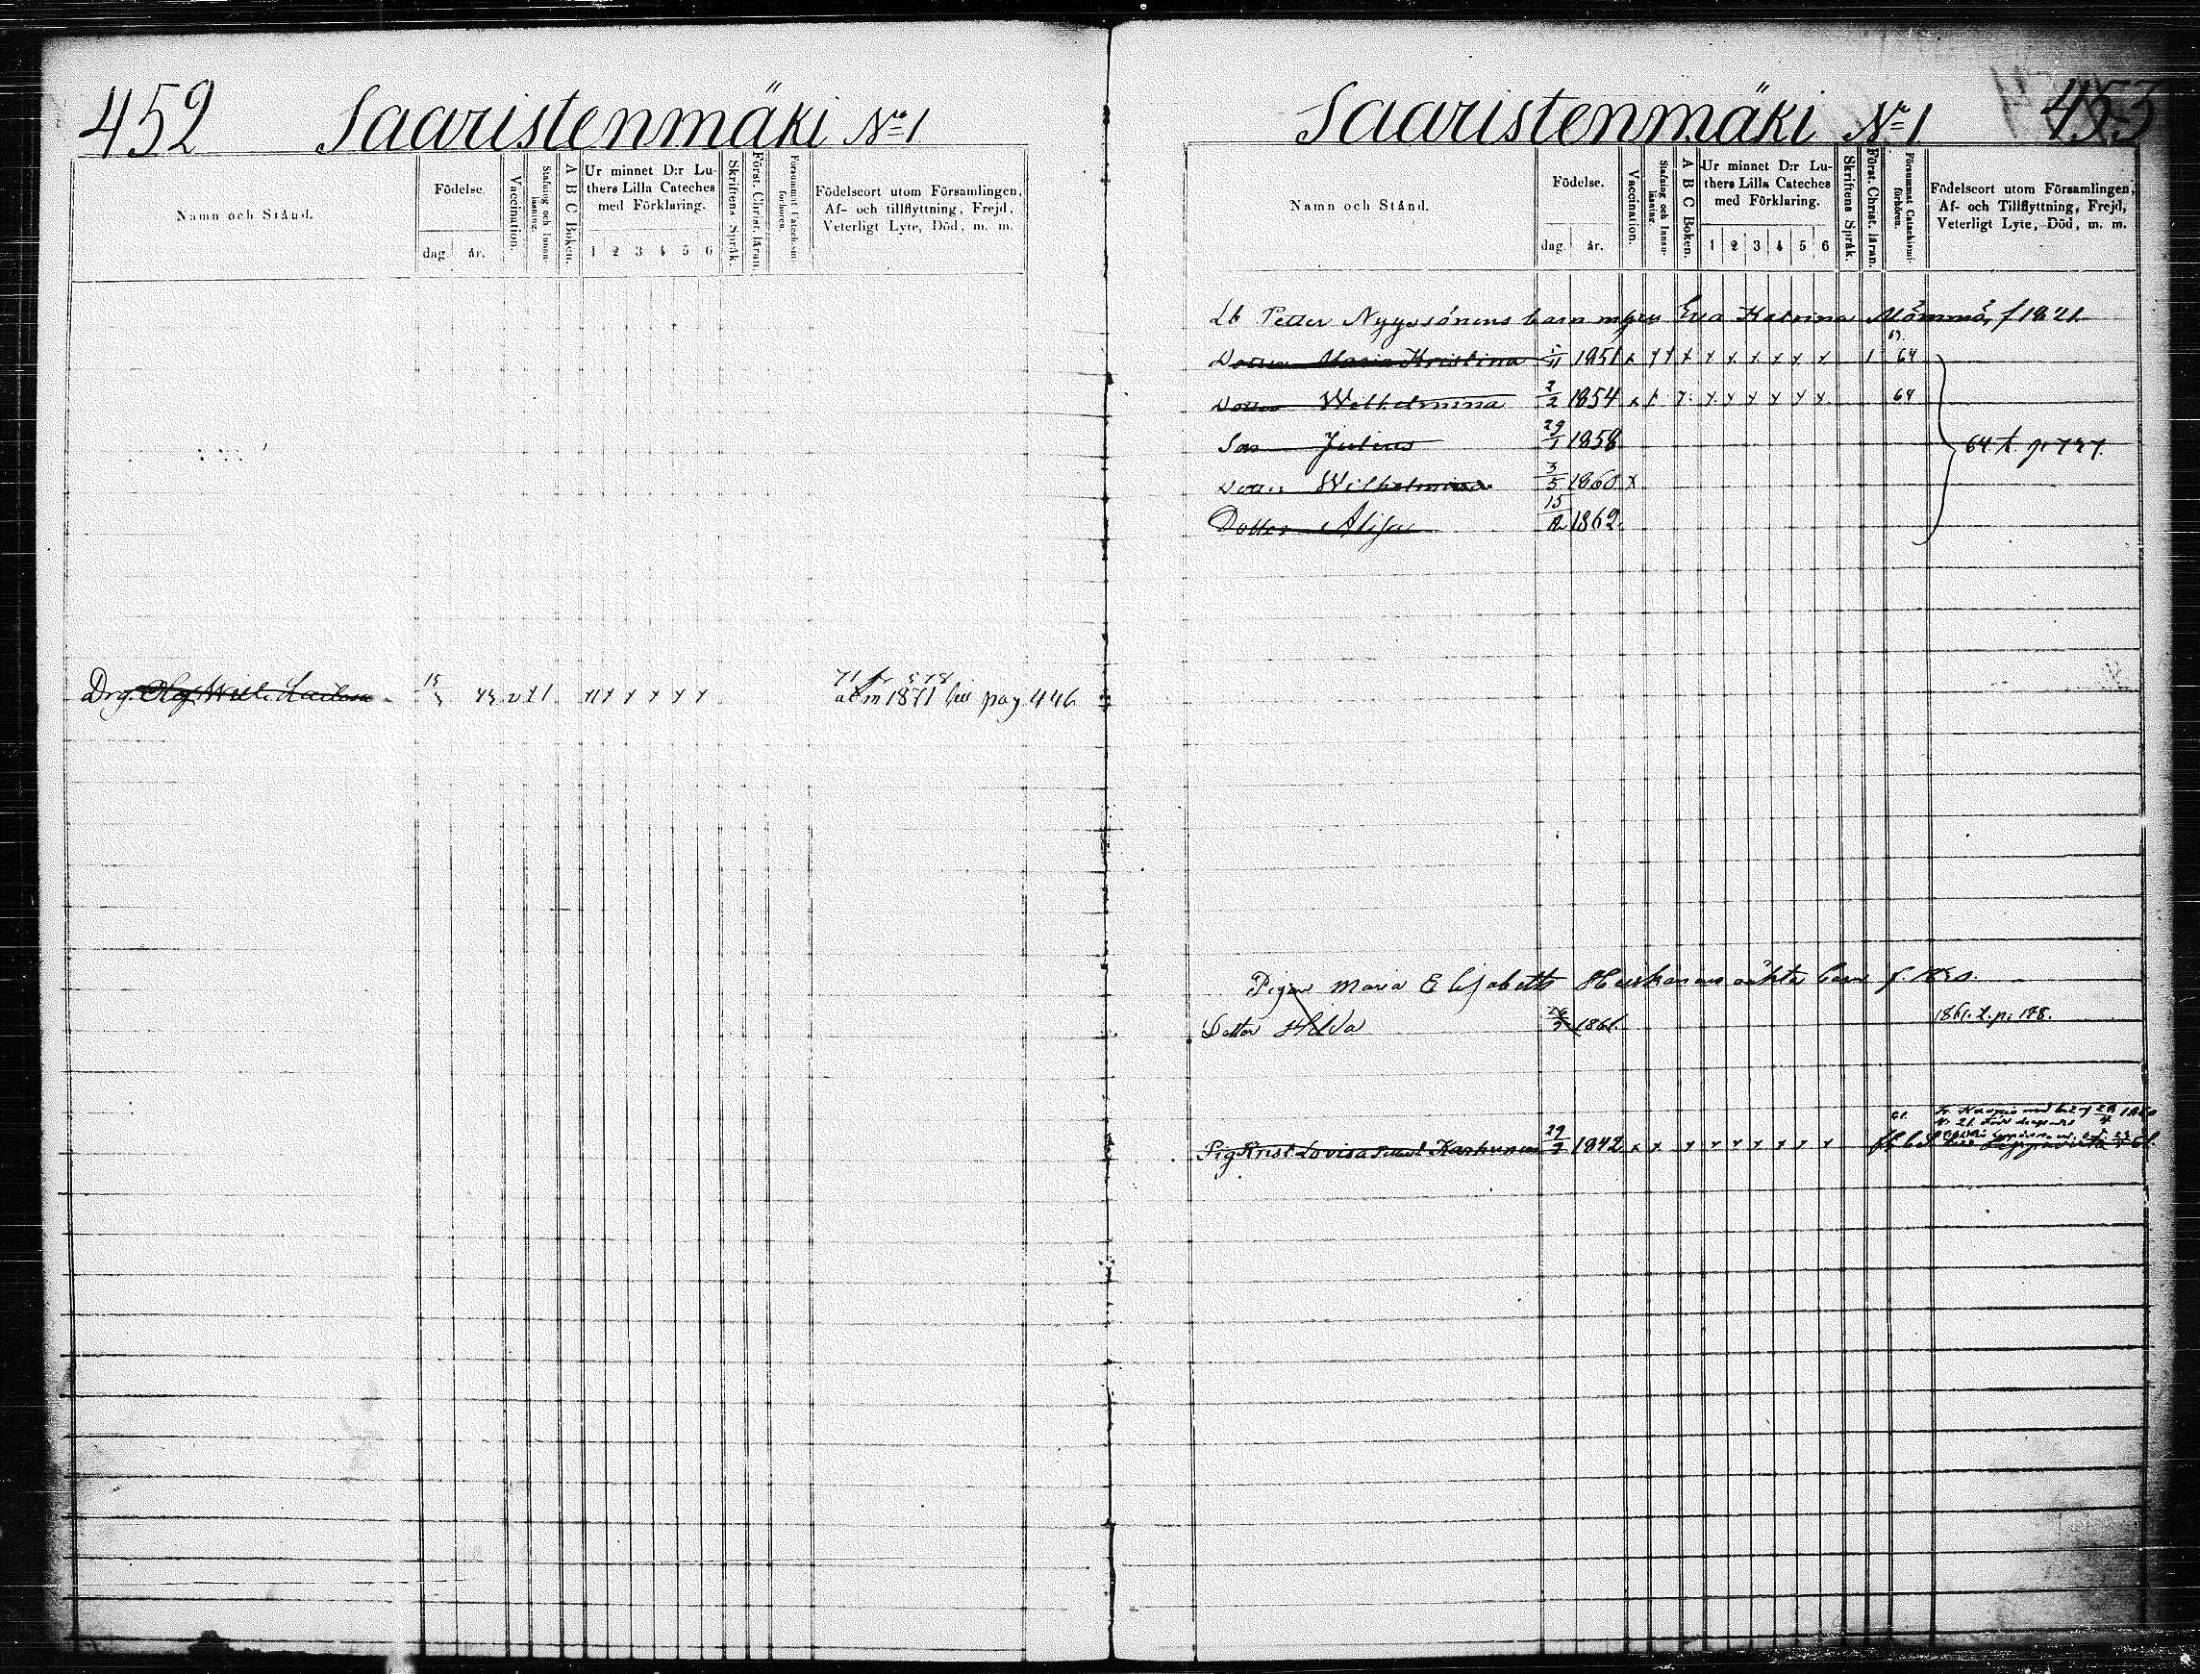 452 Saaristenmäki No 1
Namn och Stånd.
Födelse.
dag. år.
Vaccination.
Stafning och Innanläsning.
A B C Boken.
Ur minnet D:r Luthers Lilla Cateches med Förklaring.
1 2 3 4 5 6
Skriftens Språk.
Först. Christ. läran.
Försummat Catechismiförhören.
Födelseort utom Församlingen,
Af- och tillflyttning, Frejd,
Veterligt Lyte, Död, m. m.
71 fr 578
Drg. Olof Wilh. 15 43
1871 pag 446
Saaristenmäki No 1. 453
Namn och Stånd.
Födelse.
dag. år.
Vaccination.
Stafning och Innanläsning.
A B C Boken.
Ur minnet D:r Luthers Lilla Cateches med Förklaring.
1 2 3 4 5 6
Skriftens Språk.
Först. Christ. läran.
Försummat Catechismiförhören.
Födelseort utom Församlingen,
Af- och Tillflyttning, Frejd,
Veterligt Lyte, Död, m. m.
Lb Petter Nyyssönens barn m Eva Katrina Mömmö, f 1821
Dotter Maria Kristina 1/11 1851 x x x x x x x x x 1 64
Dotter Wilhelmina 2/2 1854 x x x x x x x x 64
Son Julius 29/1 1858 64. t. p. 727.
Dotter Wilhelmina 3/5 1860 x
Dotter Alisa 15/12 1862
Pigan Maria Elisabeth Heiskanens oäkta barn f.
Dotter Hilda 26/3 1861 1861. t. p. 178.
Pig Krist Lovisa Karhunen 29/7 1842 x x x x x x x x x